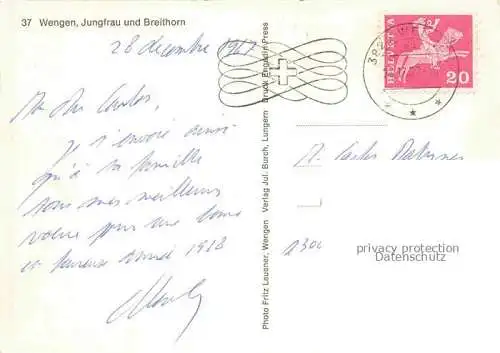 37 Wengen, Jungfrau und Breithorn
28 decembre
Carlos,
Je t'envoie ainsi
qu'à ta famille
tous mes meilleurs
voeux pour une bonne
et heureuse année 1968
Photo Fritz Lauener, Wengen Verlag Jul. Burch, Lungern Druck Engadin Press
HELVETIA
20
M. Carlos
privacy protection
Datenschutz